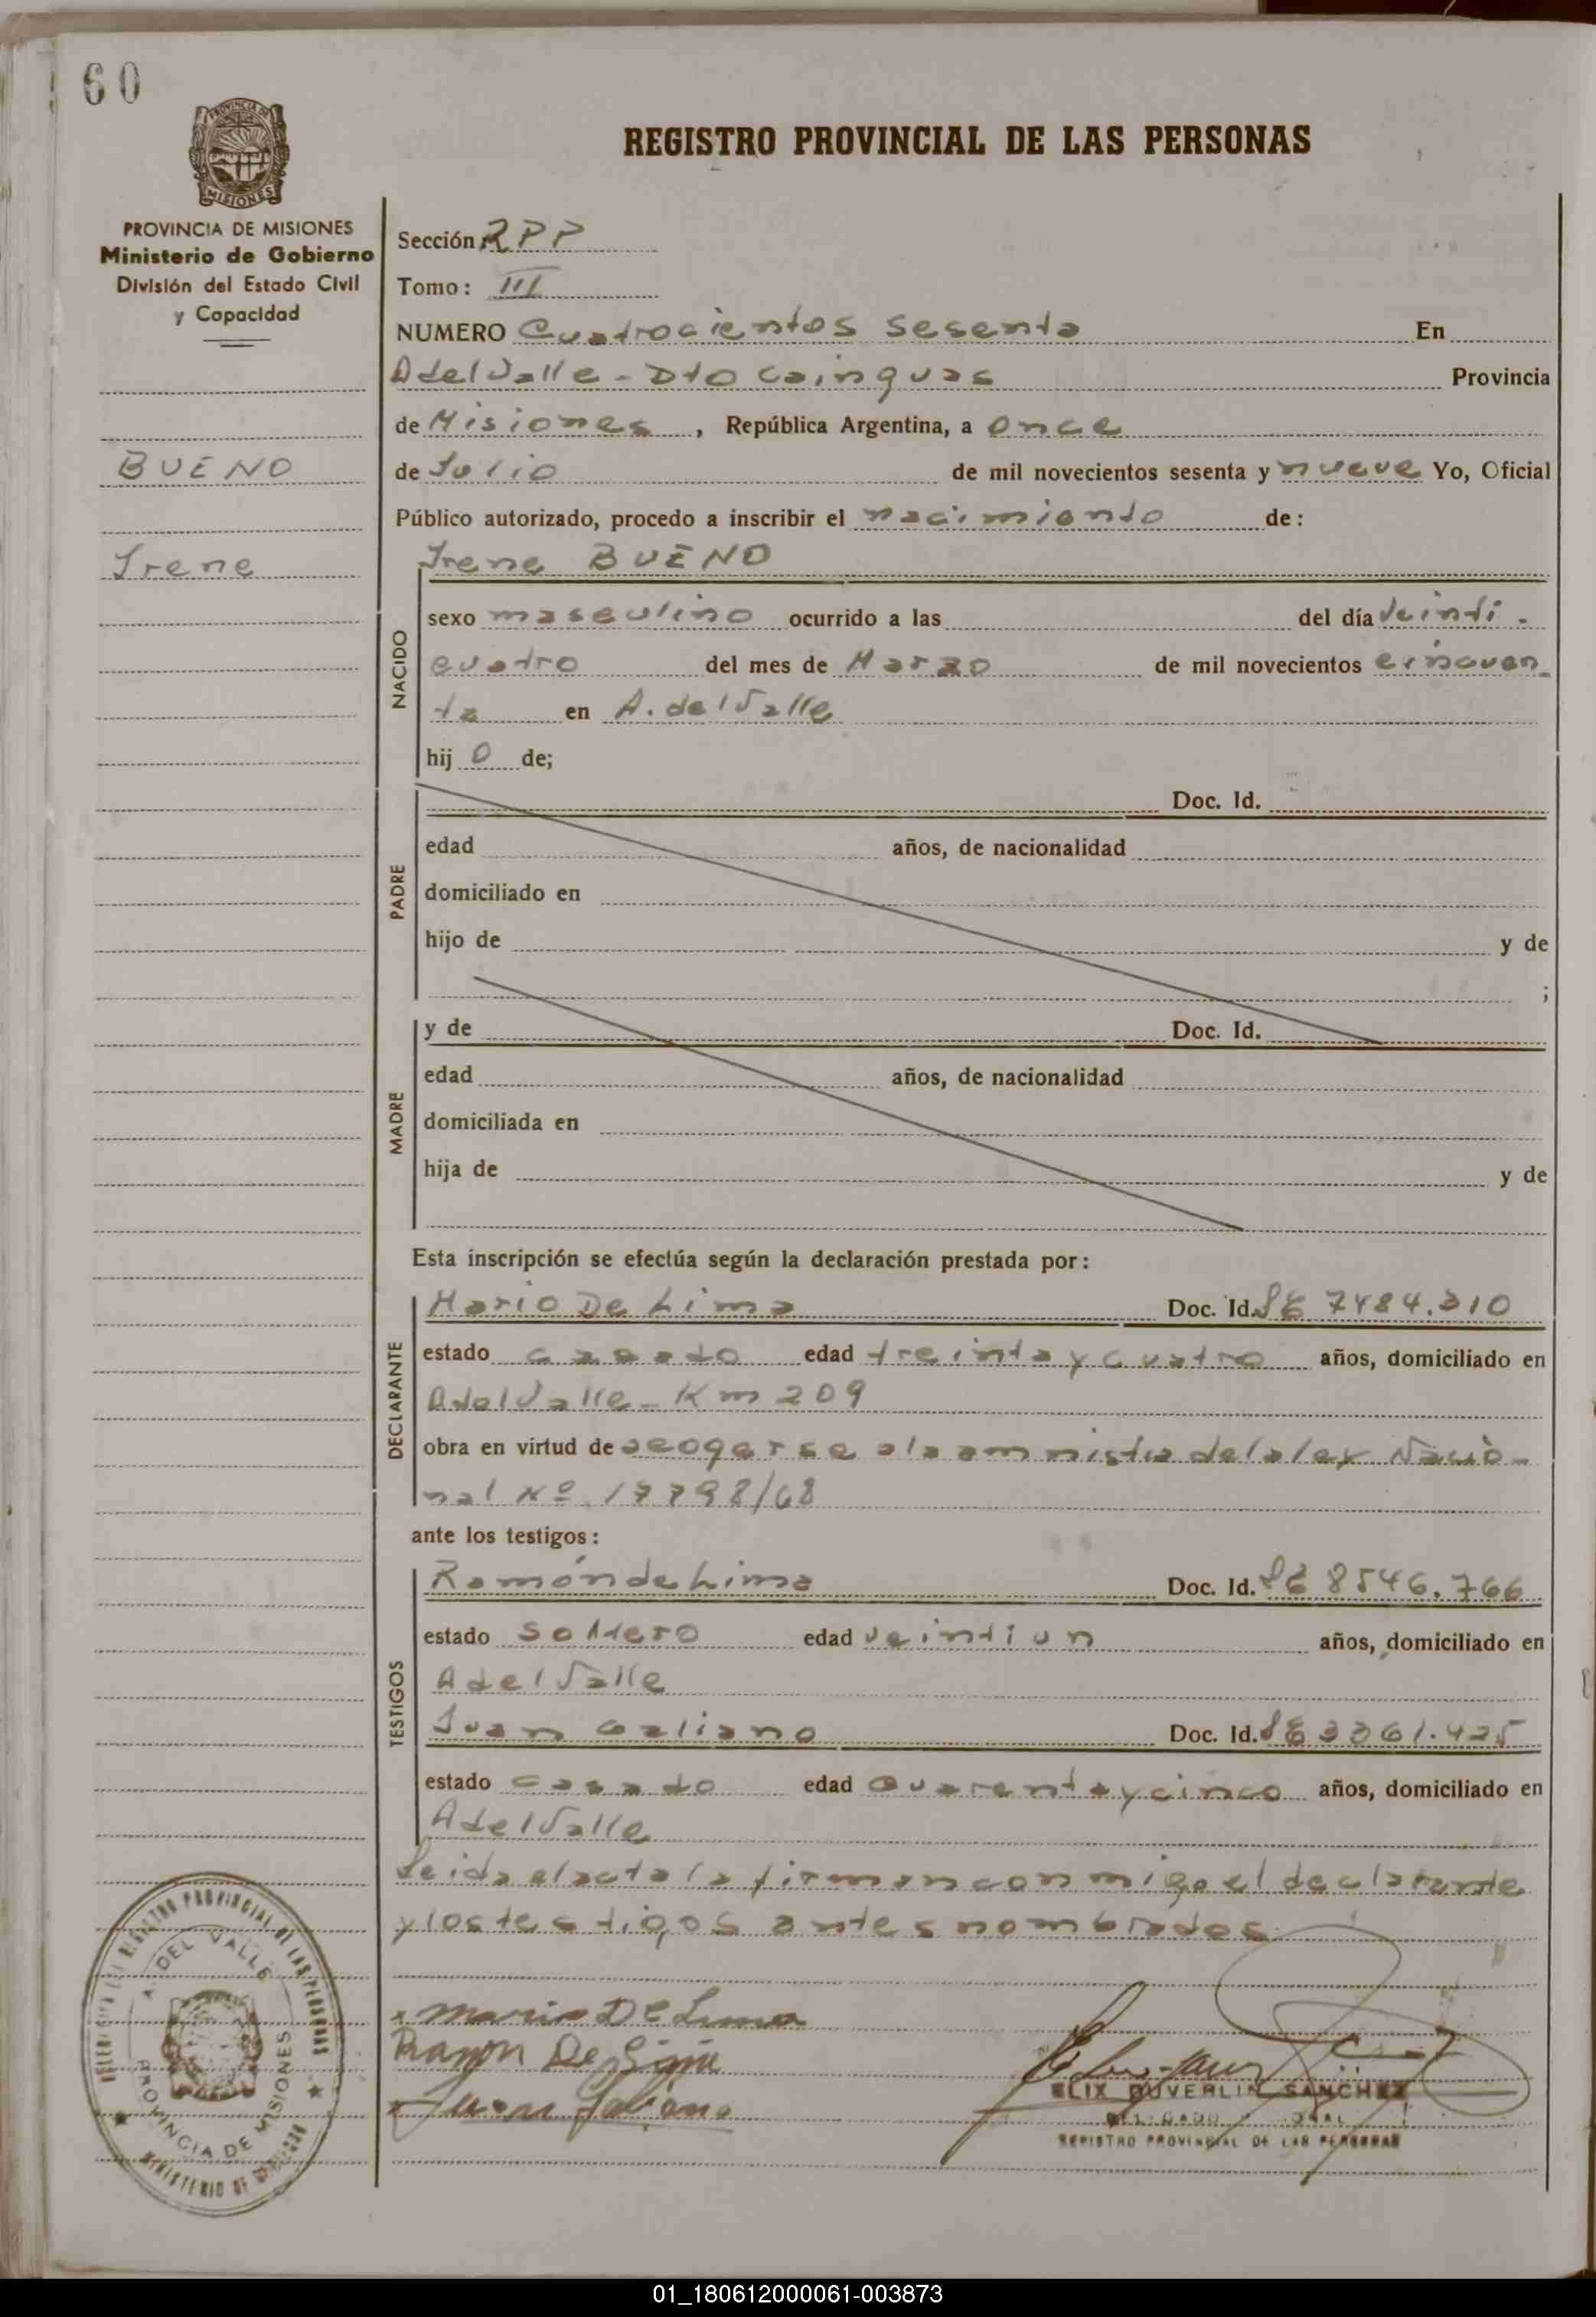 60
PROVINCIA DE MISIONES
Ministerio de Gobierno
División del Estado Civil
y Capacidad
BUENO
Irene
REGISTRO PROVINCIAL DE LAS PERSONAS
Sección RPP
Tomo: III
NUMERO Cuatrocientos sesenta En
A del Valle - Dto Cainguas Provincia
de Misiones, República Argentina, a once
de Julio de mil novecientos sesenta y nueve Yo, Oficial
Público autorizado, procedo a inscribir el nacimiento de:
Irene BUENO
NACIDO
sexo masculino ocurrido a las del día veinti-
cuatro del mes de Marzo de mil novecientos cincuen
ta en A. del Valle
hij o de;
PADRE
Doc. Id.
edad años, de nacionalidad
domiciliado en
hijo de y de
;
MADRE
y de Doc. Id.
edad años, de nacionalidad
domiciliada en
hija de y de
Esta inscripción se efectúa según la declaración prestada por:
DECLARANTE
Mario De Lima Doc. Id. 7484.310
estado casado edad treinta y cuatro años, domiciliado en
A del Valle - Km 209
obra en virtud de acogerse a la amnistia de la ley Nacio-
nal Nº 17798/68
ante los testigos:
TESTIGOS
Ramón de Lima Doc. Id. 8546.766
estado soltero edad veintiun años, domiciliado en
A del Valle
Juan Galiano Doc. Id. 3361.425
estado casado edad cuarenta y cinco años, domiciliado en
A del Valle
Leida el acta la firman con migo el declarante
y los testigos antes nombrados
Mario De Lima
Ramon De Lima
Juan Galiano
ELIX DUVERLIN SANCHEZ
REGISTRO PROVINCIAL DE LAS PERSONAS
REGISTRO PROVINCIAL DE LAS PERSONAS
A. DEL VALLE
PROVINCIA DE MISIONES
MINISTERIO DE
01_180612000061-003873